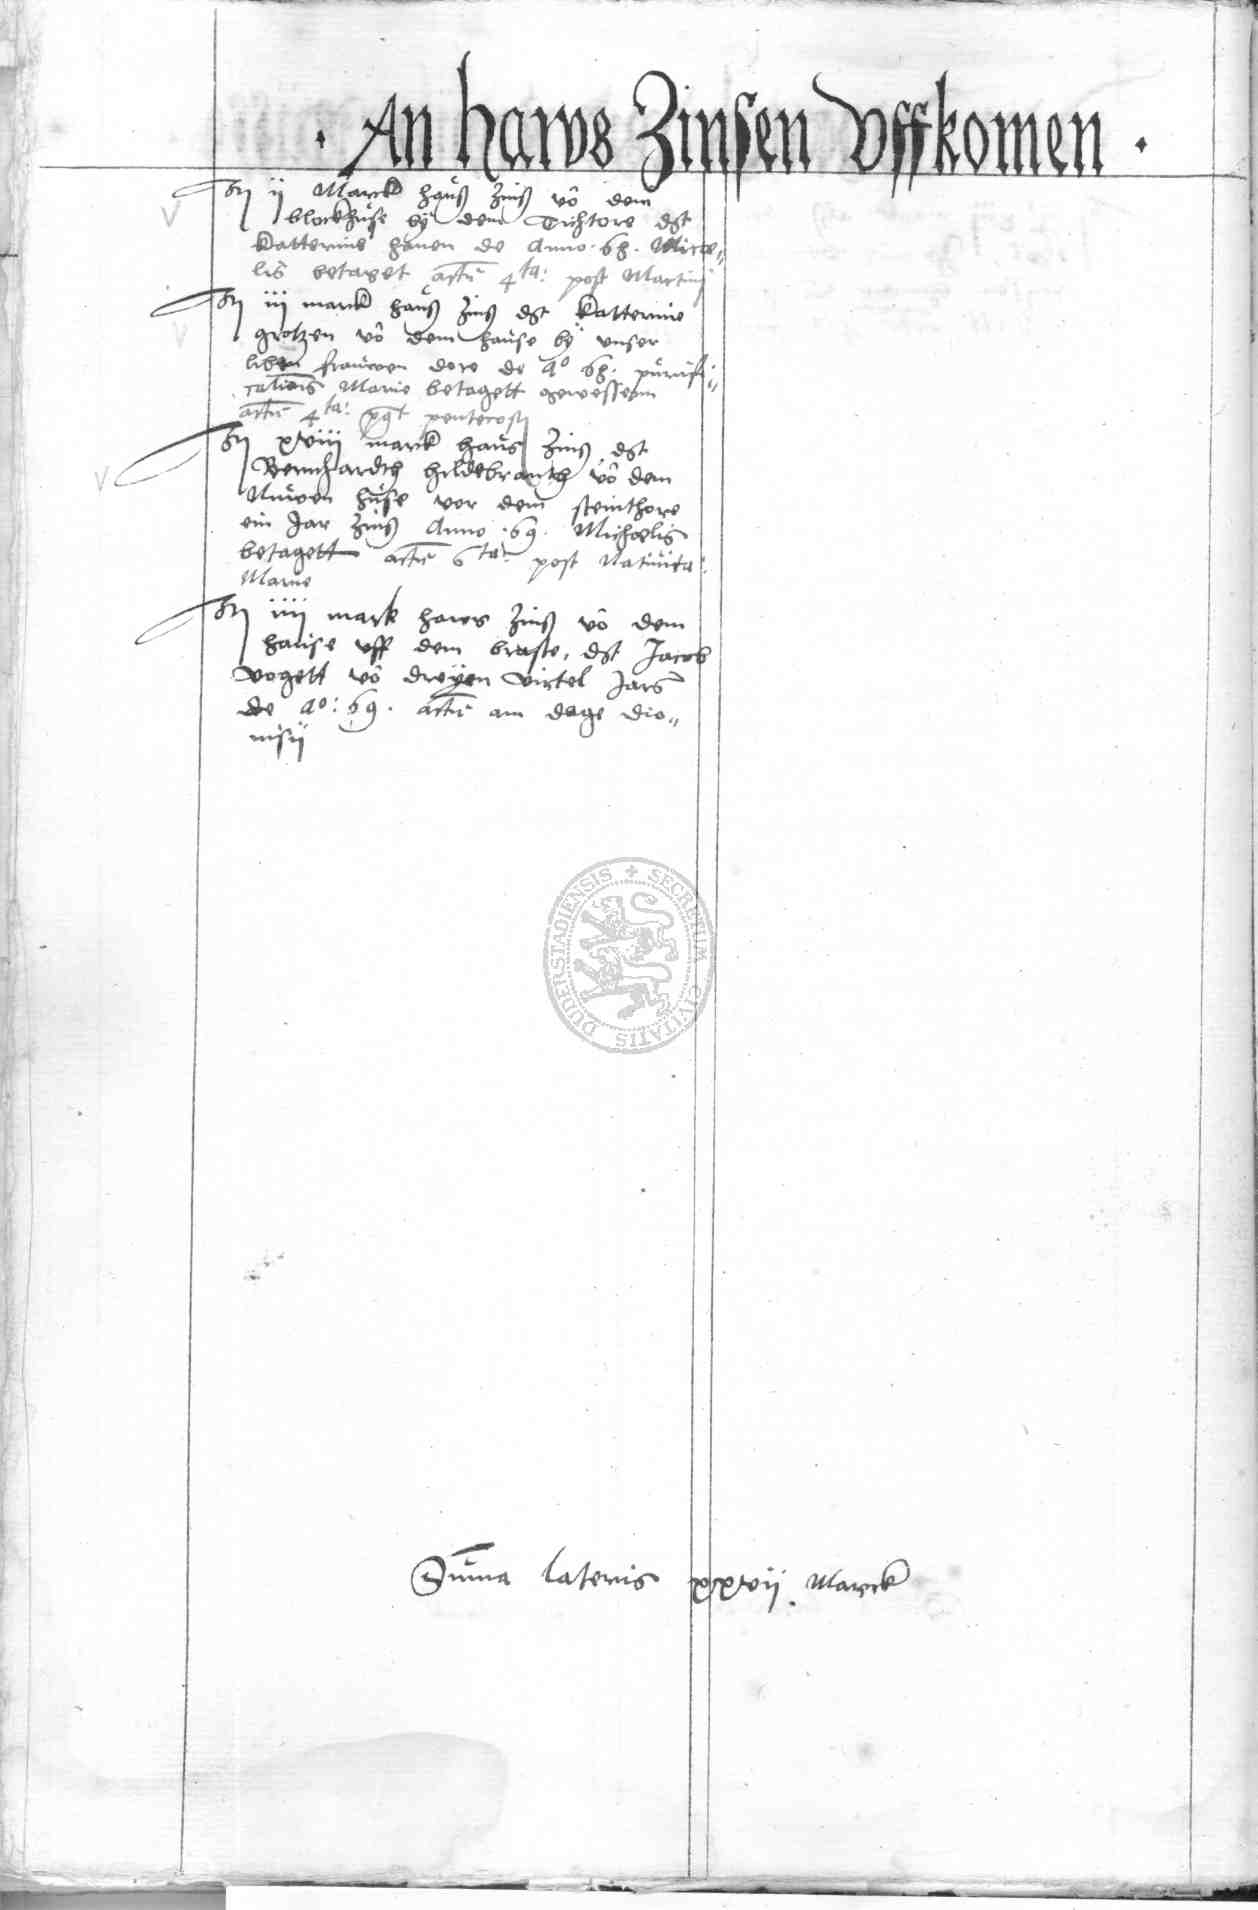 · An haws Zinsen Uffkomen ·
It ij Marck hauß zinß vō dem
blockhuse by dem Tichtore dt
Katterine hanen de Anno · 68 · Micae„
lis betaget actū 4ta: post Martinj
It iij marck hauß zinß dt Katterine
grotzen vō dem hause by unser
liben frauwen dore de Aº 68 · purifi„
cationis Marie betagett gewessenn
actū 4ta: post pentecost
It xviij marck hauß zinß dt
Bernhardth hildebranth vō dem
Nuwen huse vor dem steinthore
ein Jar zinß Anno · 69 · Michaelis
betagett actū 6ta: post Nativita:
Marie
It iiij mark haws zinß vō dem
hause uff dem , dt Jacob
vogett vō dreyen virtel Jars
de Aº: 69 · actū am dage dio„
nisij
Suma lateris xxvij Marck
SECRETUM CIVITATIS DUDERSTADIENSIS